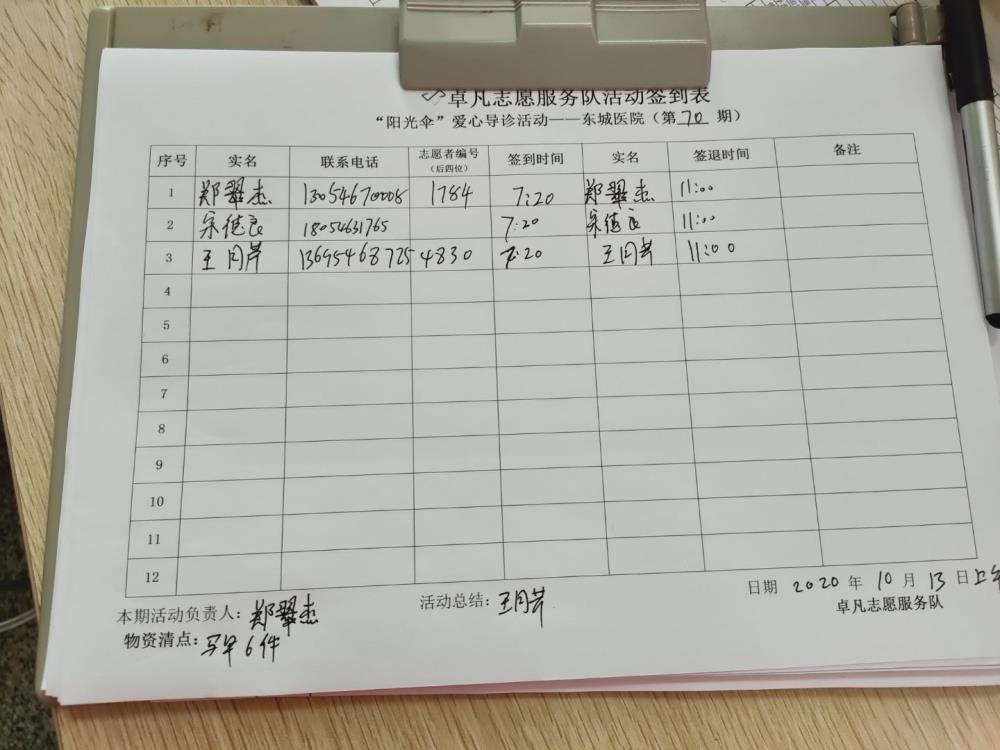 卓凡志愿服务队活动签到表
“阳光伞”爱心导诊活动——东城医院（第 70 期）
序号 实名 联系电话 志愿者编号（后四位） 签到时间 实名 签退时间 备注
1 郑翠杰 13054670008 1784 7:20 郑翠杰 11:00
2 宋德良 18054631765 7:20 宋德良 11:00
3 王月芹 13695468725 4830 7:20 王月芹 11:00
4
5
6
7
8
9
10
11
12
日期 2020 年 10 月 13 日上午
本期活动负责人：郑翠杰 活动总结：王月芹 卓凡志愿服务队
物资清点：6件